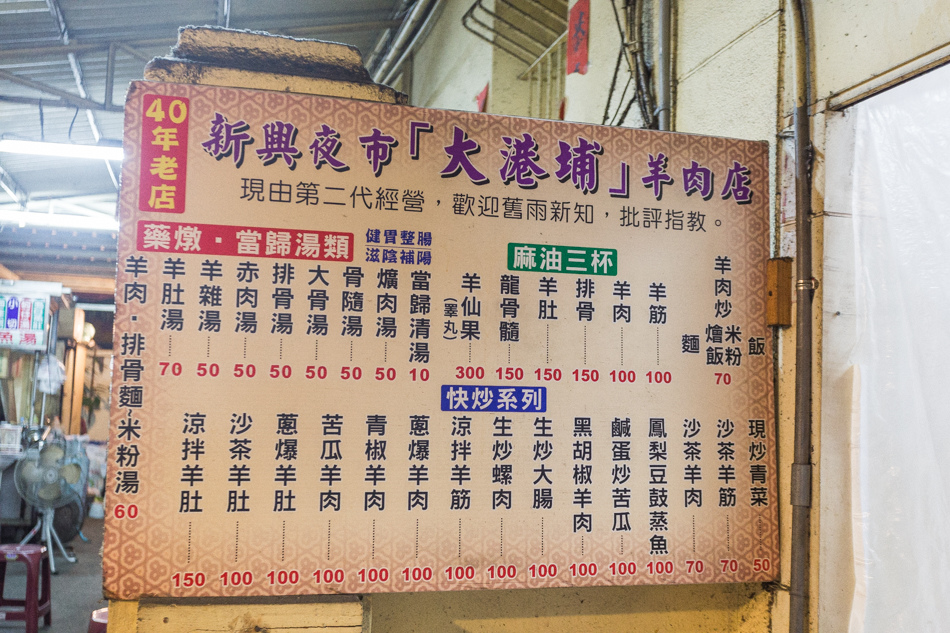 40年老店
新興夜市「大港埔」羊肉店
現由第二代經營，歡迎舊雨新知，批評指教。
藥燉·當歸湯類
健胃整腸
滋陰補陽
羊肉·排骨麵~米粉湯 60
羊肚湯 70
羊雜湯 50
赤肉湯 50
排骨湯 50
大骨湯 50
骨隨湯 50
爌肉湯 50
當歸清湯 10
麻油三杯
羊仙果(睪丸) 300
龍骨髓 150
羊肚 150
排骨 150
羊肉 100
羊筋 100
羊肉炒 麵 燴飯 米粉 飯 70
快炒系列
涼拌羊肚 150
沙茶羊肚 100
蔥爆羊肚 100
苦瓜羊肉 100
青椒羊肉 100
蔥爆羊肉 100
涼拌羊筋 100
生炒螺肉 100
生炒大腸 100
黑胡椒羊肉 100
鹹蛋炒苦瓜 100
鳳梨豆鼓蒸魚 100
沙茶羊肉 70
沙茶羊筋 70
現炒青菜 50